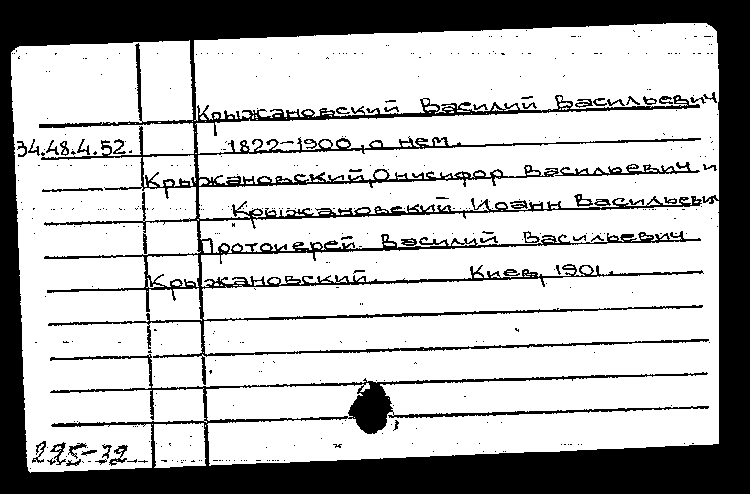 Крыжановский Василий Васильевич
34.48.4.52. 1822-1900, о нем.
Крыжановский, Онисифор Васильевич и
Крыжановский, Иоанн Васильевич
Протоиерей Василий Васильевич
Крыжановский. Киев, 1901.
225-32